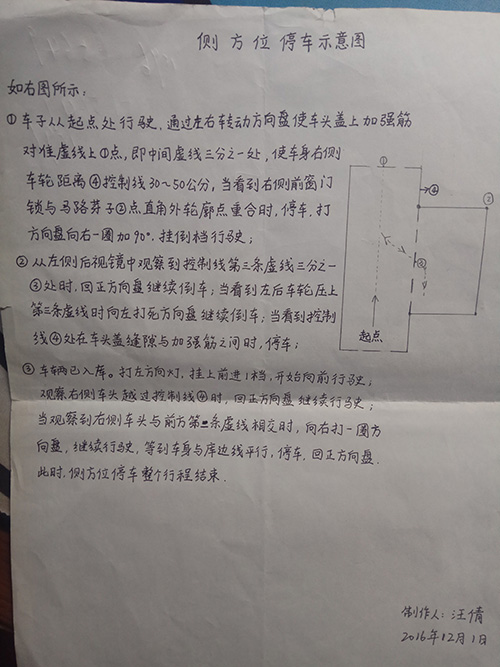 侧方位停车示意图
如右图所示:
①车子从起点处行驶,通过左右转动方向盘使车头盖上加强筋
对准虚线上①点,即中间虚线三分之一处,使车身右侧
车轮距离④控制线30~50公分,当看到右侧前窗门
锁与马路芽子②点直角外轮廓点重合时,停车,打
方向盘向右一圈加90°.挂倒档行驶;
②从左侧后视镜中观察到控制线第三条虚线三分之一
③处时,回正方向盘继续倒车;当看到左后车轮压上
第三条虚线时向左打死方向盘继续倒车;当看到控制
线④处在车头盖缝隙与加强筋之间时,停车;
③车辆已入库。打左方向灯,挂上前进1档,开始向前行驶;
观察右侧车头越过控制线④时,回正方向盘继续行驶;
当观察到右侧车头与前方第一条虚线相交时,向右打一圈方
向盘,继续行驶,等到车身与库边线平行,停车,回正方向盘.
此时,侧方位停车整个行程结束.
①
④
②
③
起点
制作人:汪倩
2016年12月1日